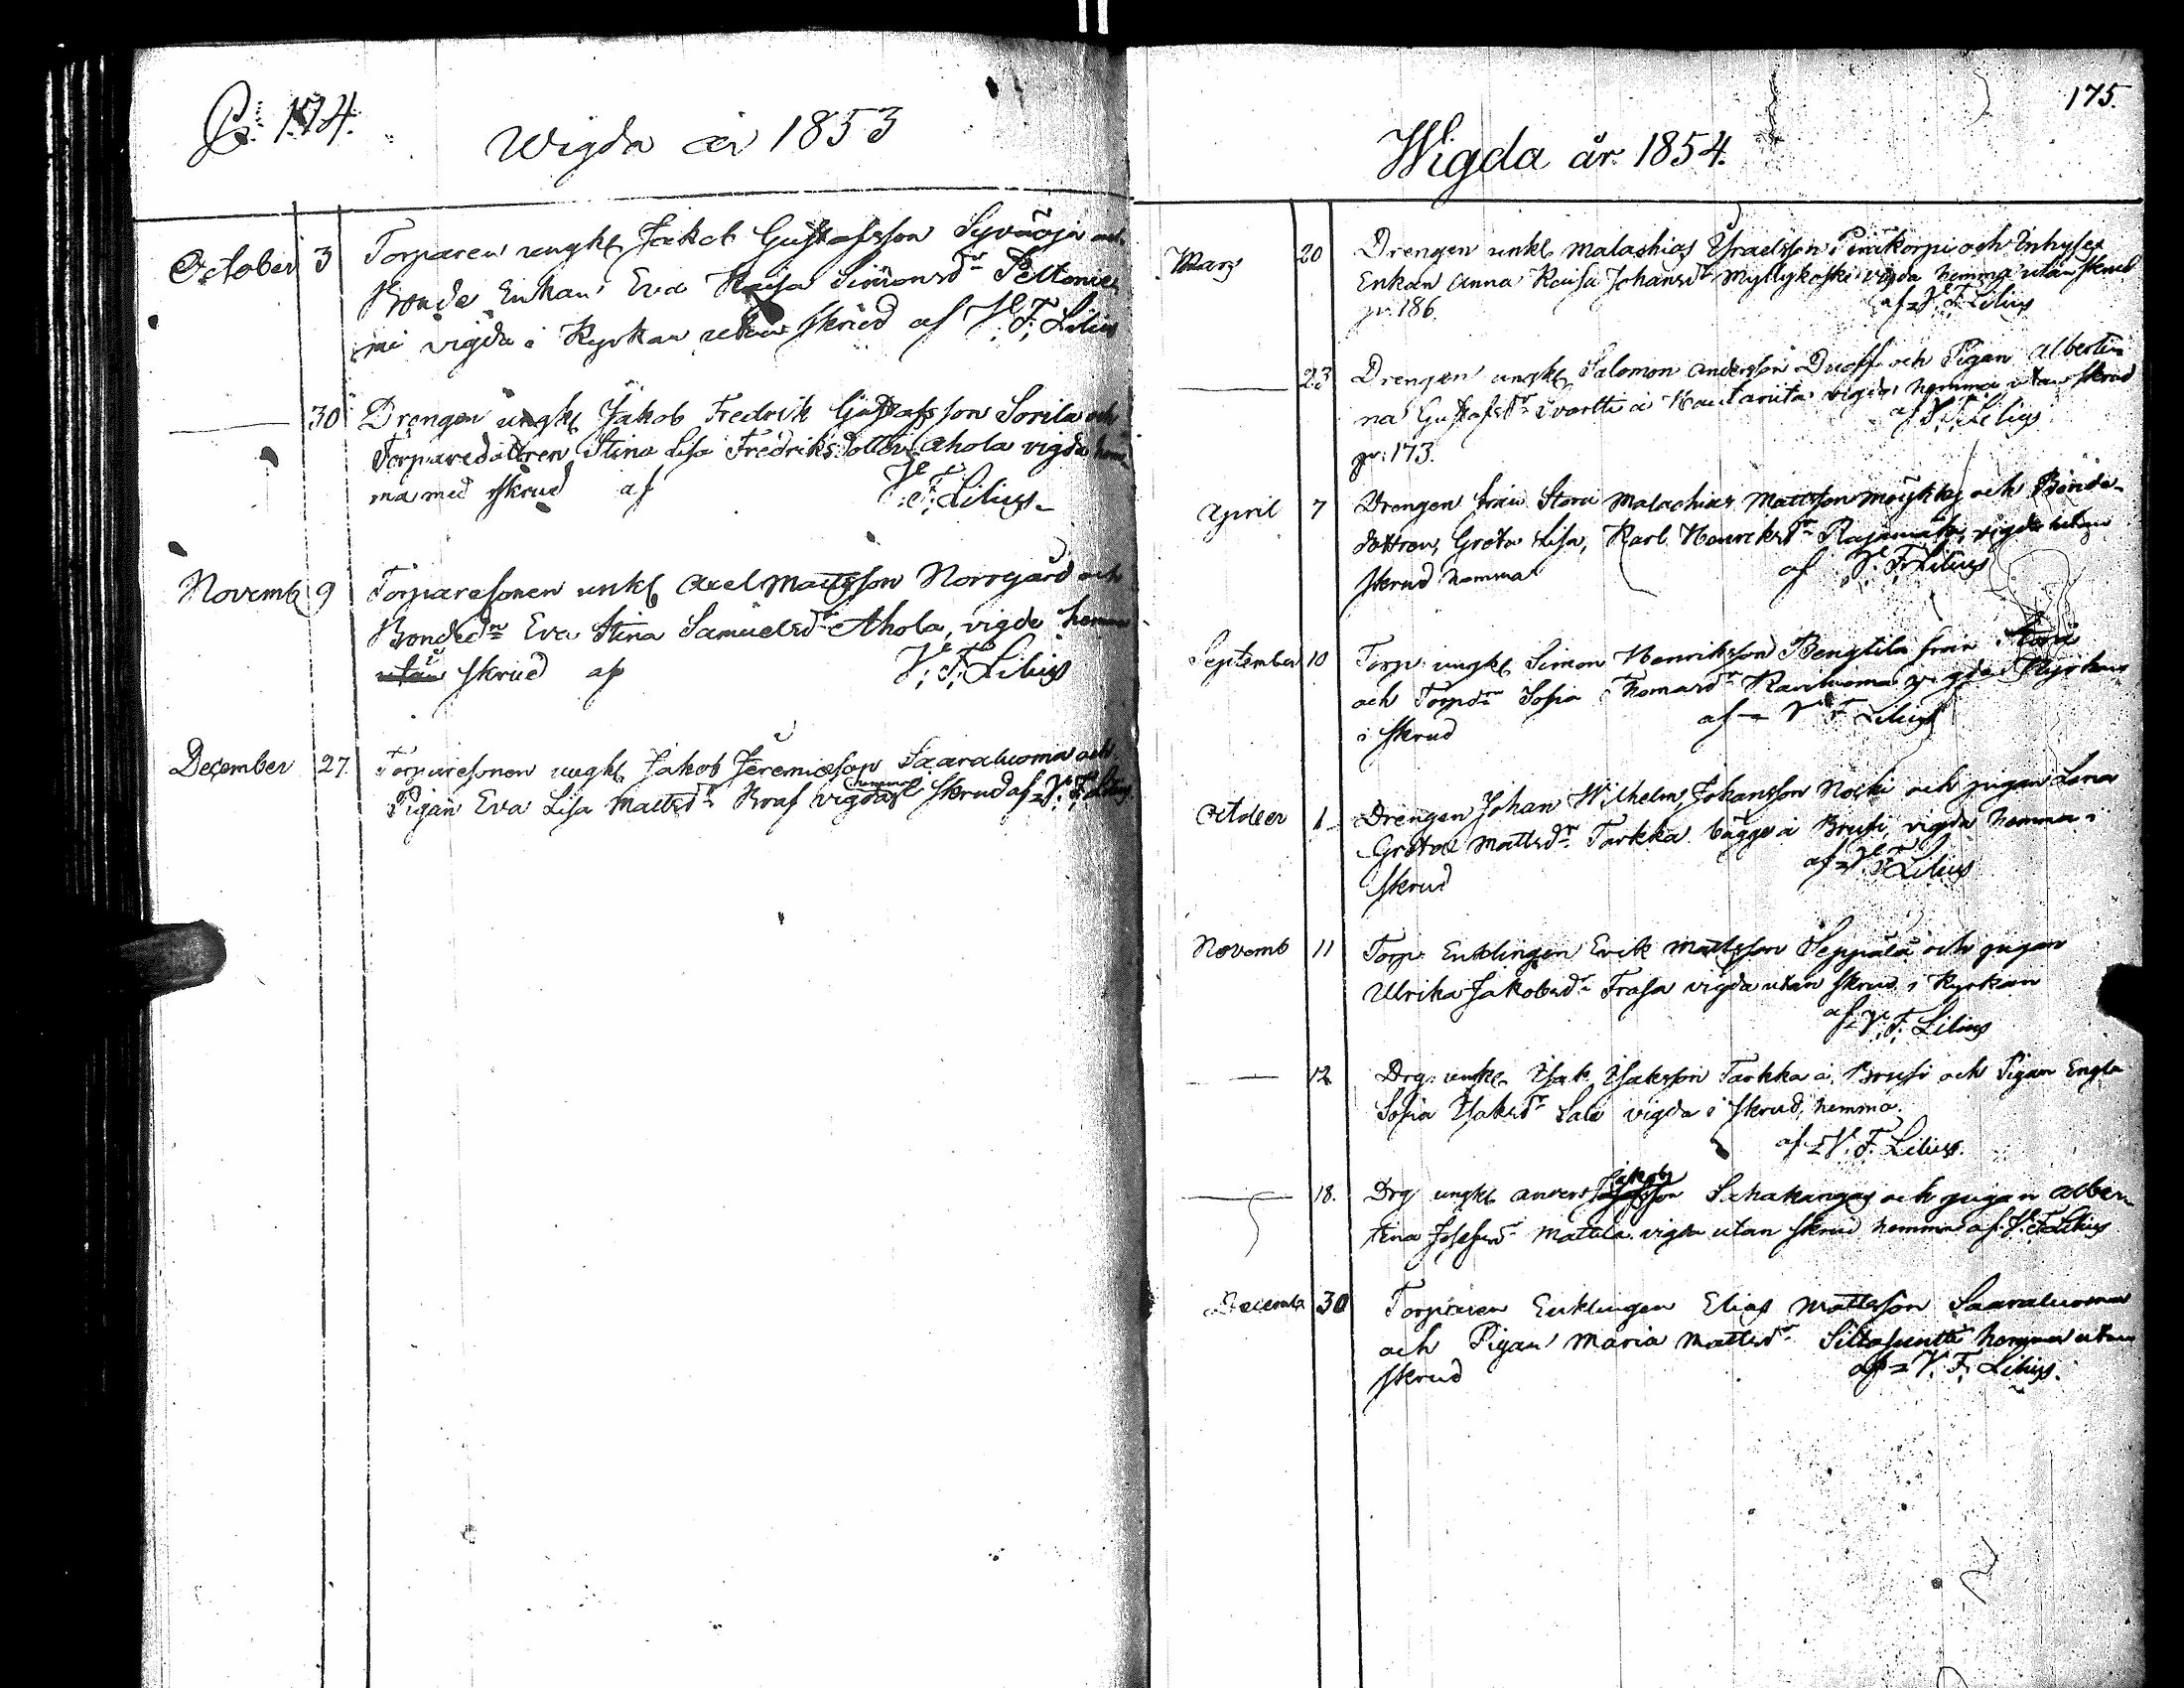 P. 174.
Wigda år 1853
October 3 Torparen ungkl Jakob Gustafsson Syväoja och
Bonde Enkan Eva Kaisa Simonsdr Peltonie
mi vigda i Kyrkan utan skrud af V. F. Lilius
30 Drengen ungkl Jakob Fredrik Gustafsson Sorila och
Torparedottren Stina Lisa Fredriksdotter Ahola vigda hem
ma med skrud af V. F. Lilius
Novemb 9 Torparesonen unkl Axel Mattsson Norrgård och
Bondedr Eva Stina Samuelsdr Ahola, vigde hemma
i skrud af V. F. Lilius
December 27. Torparesonen ungkl Jakob Jeremiasson Saaraluoma och
Pigan Eva Lisa Mattsdr Braf vigda hemma i skrud af V. F. Lilius
175.
Wigda år 1854.
Mars 20 Drengen unkl Malachias Israelsson Peräkorpi och Inhyses
Enkan Anna Kaisa Johansdr Myllykoski vigda hemma utan skrud
af V. F. Lilius
pr. 186.
23 Drengen ungkl Salomon Andersson Duoff och Pigan Alberti
na Gustafsdr Svartti å Hautaniita vigda hemma utan skrud
af V. F. Lilius
pr: 173.
April 7 Drengen från Storå Malachias Mattsson och Bonde
dottren, Greta Lisa, Karl Henricksdr Rajamäki, vigda utan
skrud hemma af V. F. Lilius
September 10 Torp: ungkl Simon Henriksson Bengtila från
och Torpdr Sofia Thomasdr Rantuoma vigda i Kyrkan
i skrud af V. F. Lilius
October 1 Drengen Johan Wilhelm Johansson Koski och pigan Lena
Greta Mattsdr Tarkka bägge å Brusi, vigda hemma i
skrud af V. F. Lilius
Novemb 11 Torp. Enklingen Erik Mattsson Seppälä och pigan
Ulrika Jakobsdr Frasa vigda utan skrud i Kyrkan
af V. F. Lilius
12 Drg: unkl. Isak Isaksson Tarkka å Brusi och Pigan Engla
Sofia Isaksdr Sale vigda i skrud, hemma.
af V. F. Lilius.
18. Drg ungkl Anders Jakobsson Sahakangas och pigan Alber
tina Josefsdr Mattila vigda utan skrud hemma af V. F. Lilius
December 30 Torparen Enklingen Elias Mattsson Saaraluoma
och Pigan Maria Mattsdr Siltasuntti hemma utan
skrud af V. F. Lilius.